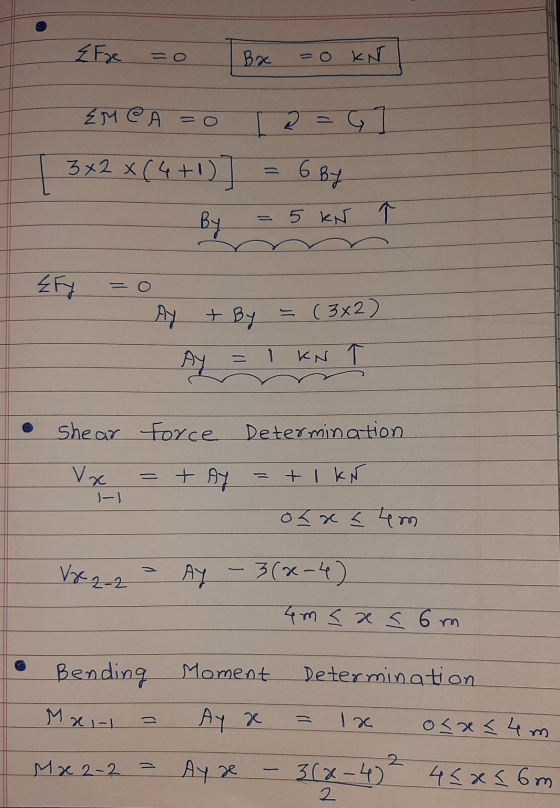 • ΣFx = 0 Bx = 0 kN
ΣM @ A = 0 [ ↻ = ↺ ]
[ 3×2 × (4+1) ] = 6 By
By = 5 kN ↑
ΣFy = 0
Ay + By = (3×2)
Ay = 1 kN ↑
• Shear force Determination
Vx 1-1 = + Ay = + 1 kN
0 ≤ x ≤ 4m
Vx 2-2 = Ay - 3(x-4)
4m ≤ x ≤ 6m
• Bending Moment Determination
Mx 1-1 = Ay x = 1x 0 ≤ x ≤ 4m
Mx 2-2 = Ay x - 3(x-4)²/2 4 ≤ x ≤ 6m